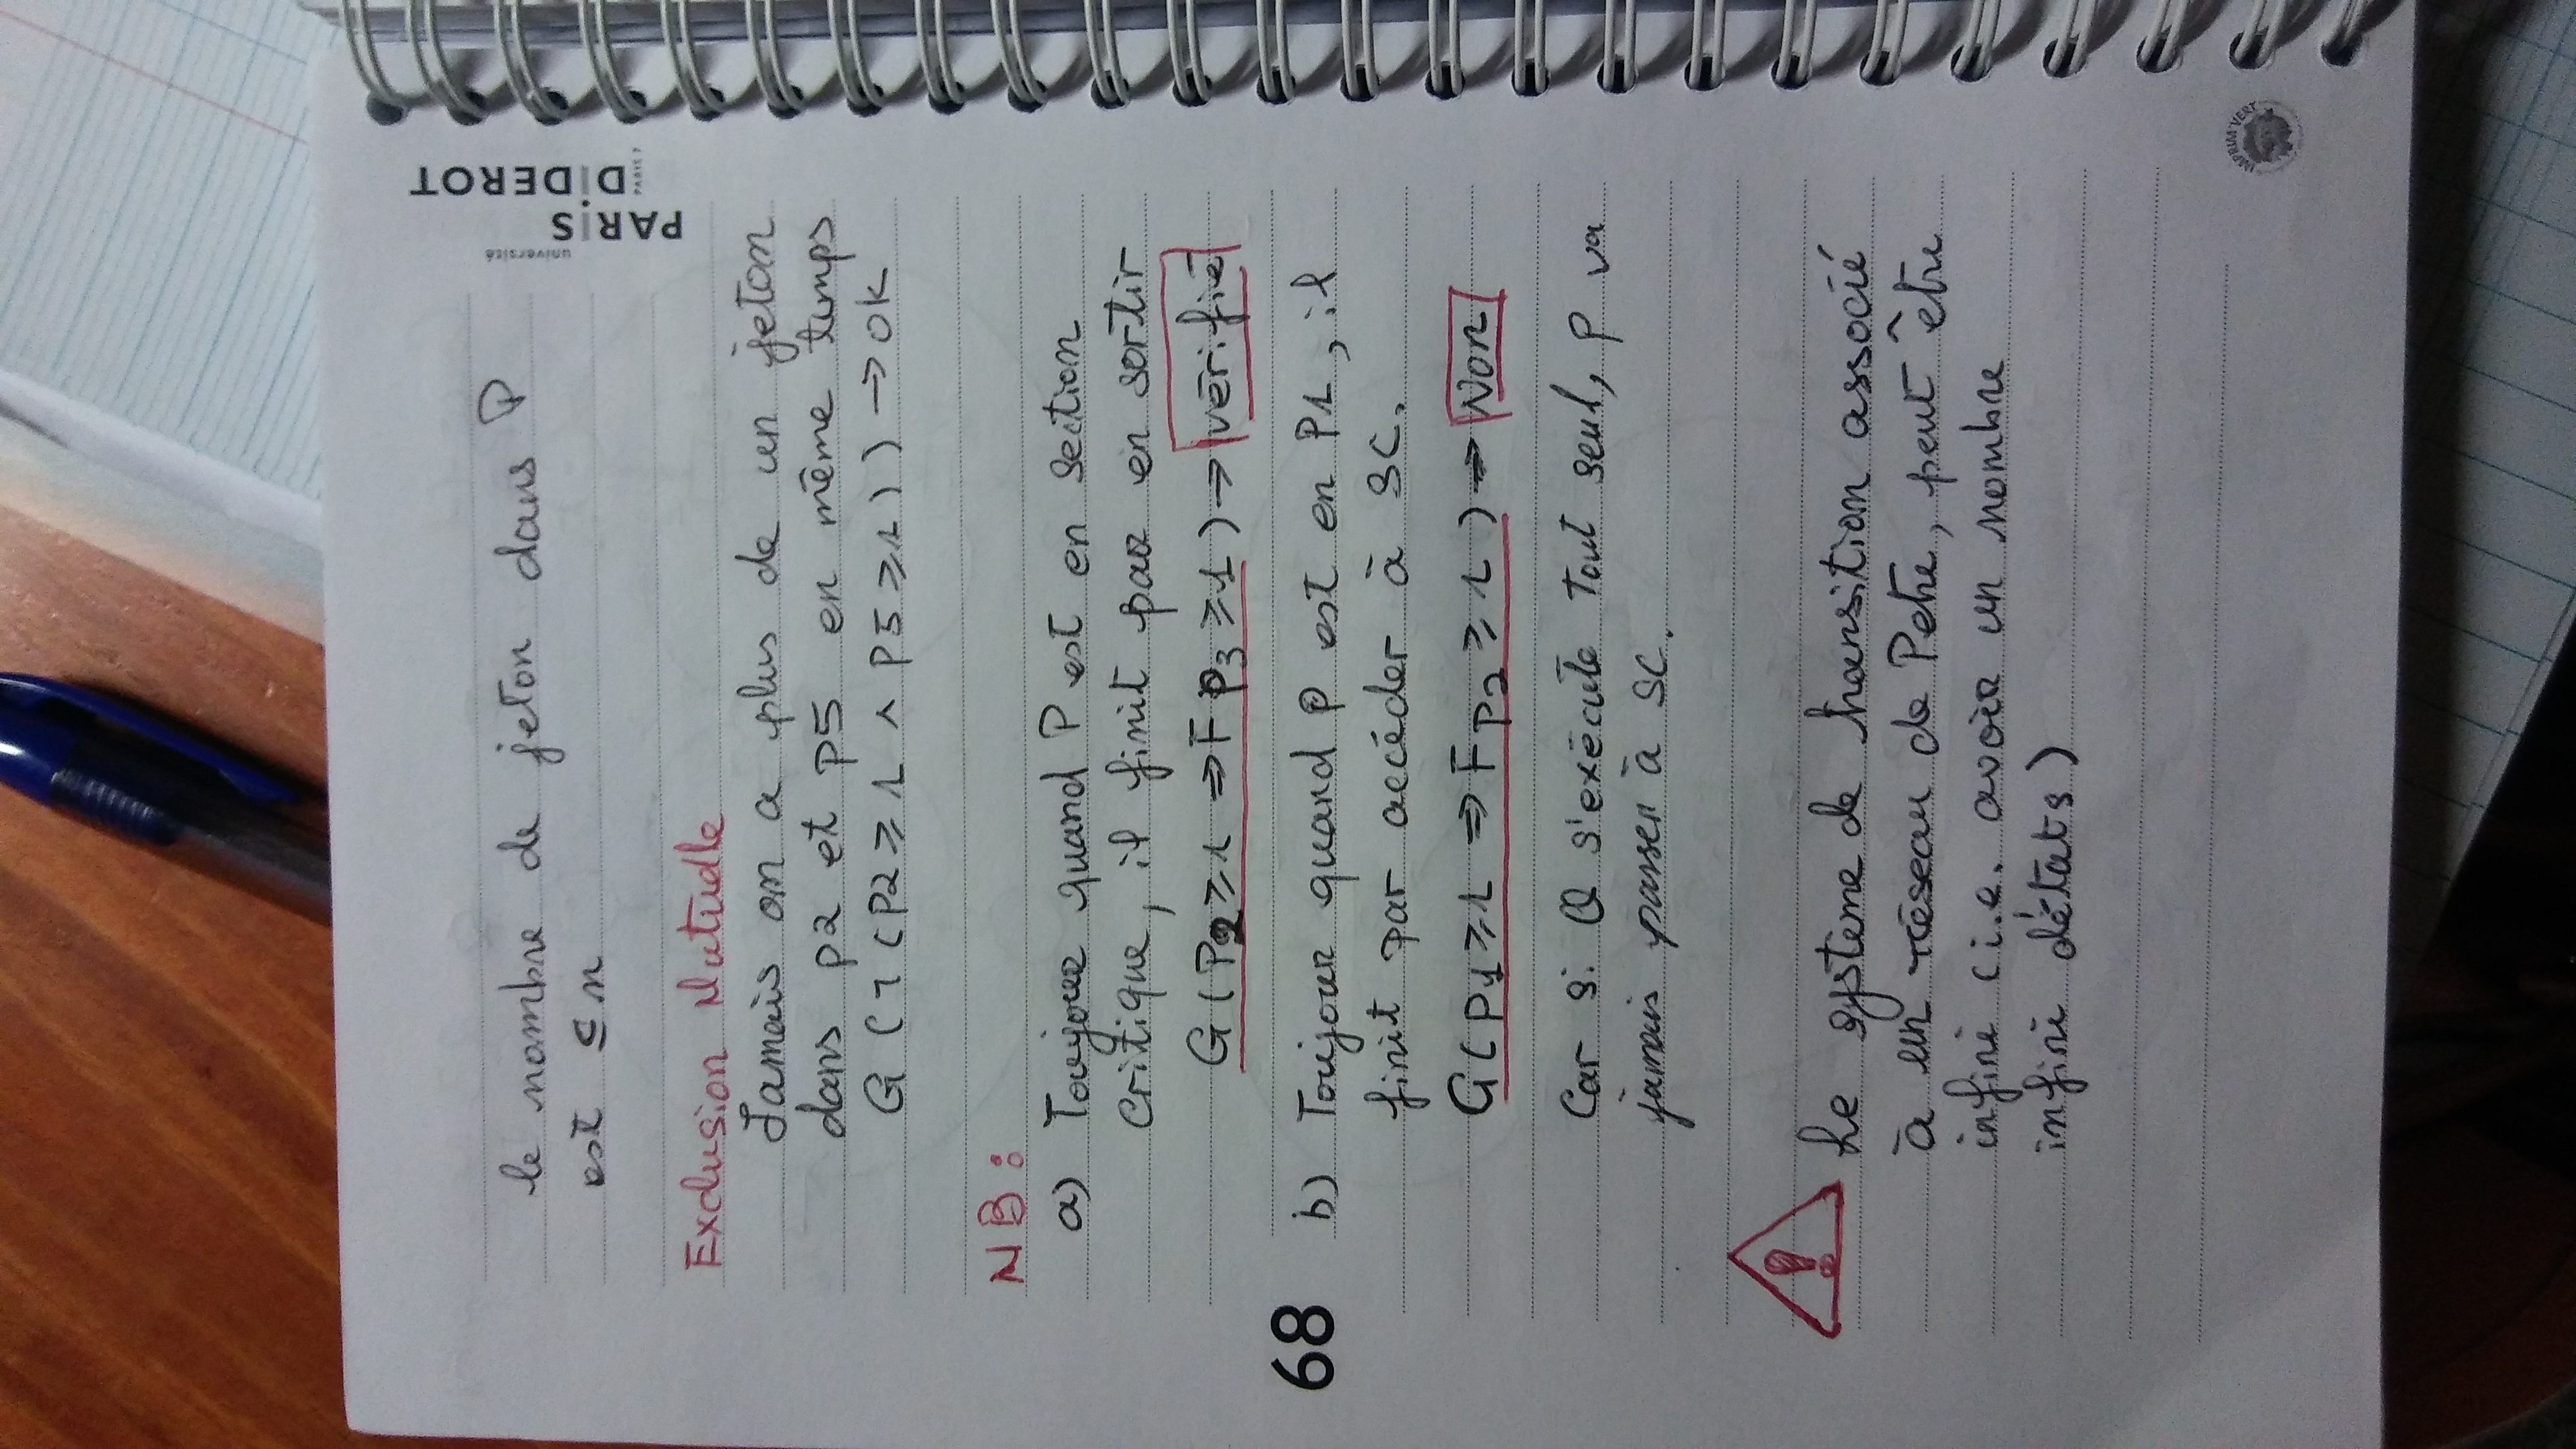 le nombre de jeton dans P
est ≤ n
université
PARIS
DIDEROT
PARIS 7
Exclusion Mutuelle
Jamais on a plus de un jeton
dans p2 et p5 en même temps
G (¬ (P2 ≥ 1 ∧ P5 ≥ 1)) → OK
NB :
a) Toujour quand P est en section
critique, il finit par en sortir
G ( P2 ≥ 1 ⇒ F P3 ≥ 1 ) → vérifié
68
b) Toujour quand P est en P1, il
finit par accéder à SC.
G( p1 ≥ 1 ⇒ F p2 ≥ 1 ) → Non
Car si Q s'exécute tout seul, p va
jamais passer à SC.
!
Le système de transition associé
à un réseau de Petre, peut être
infini (i.e. avoir un nombre
infini d'états)
IMPRIM'VERT